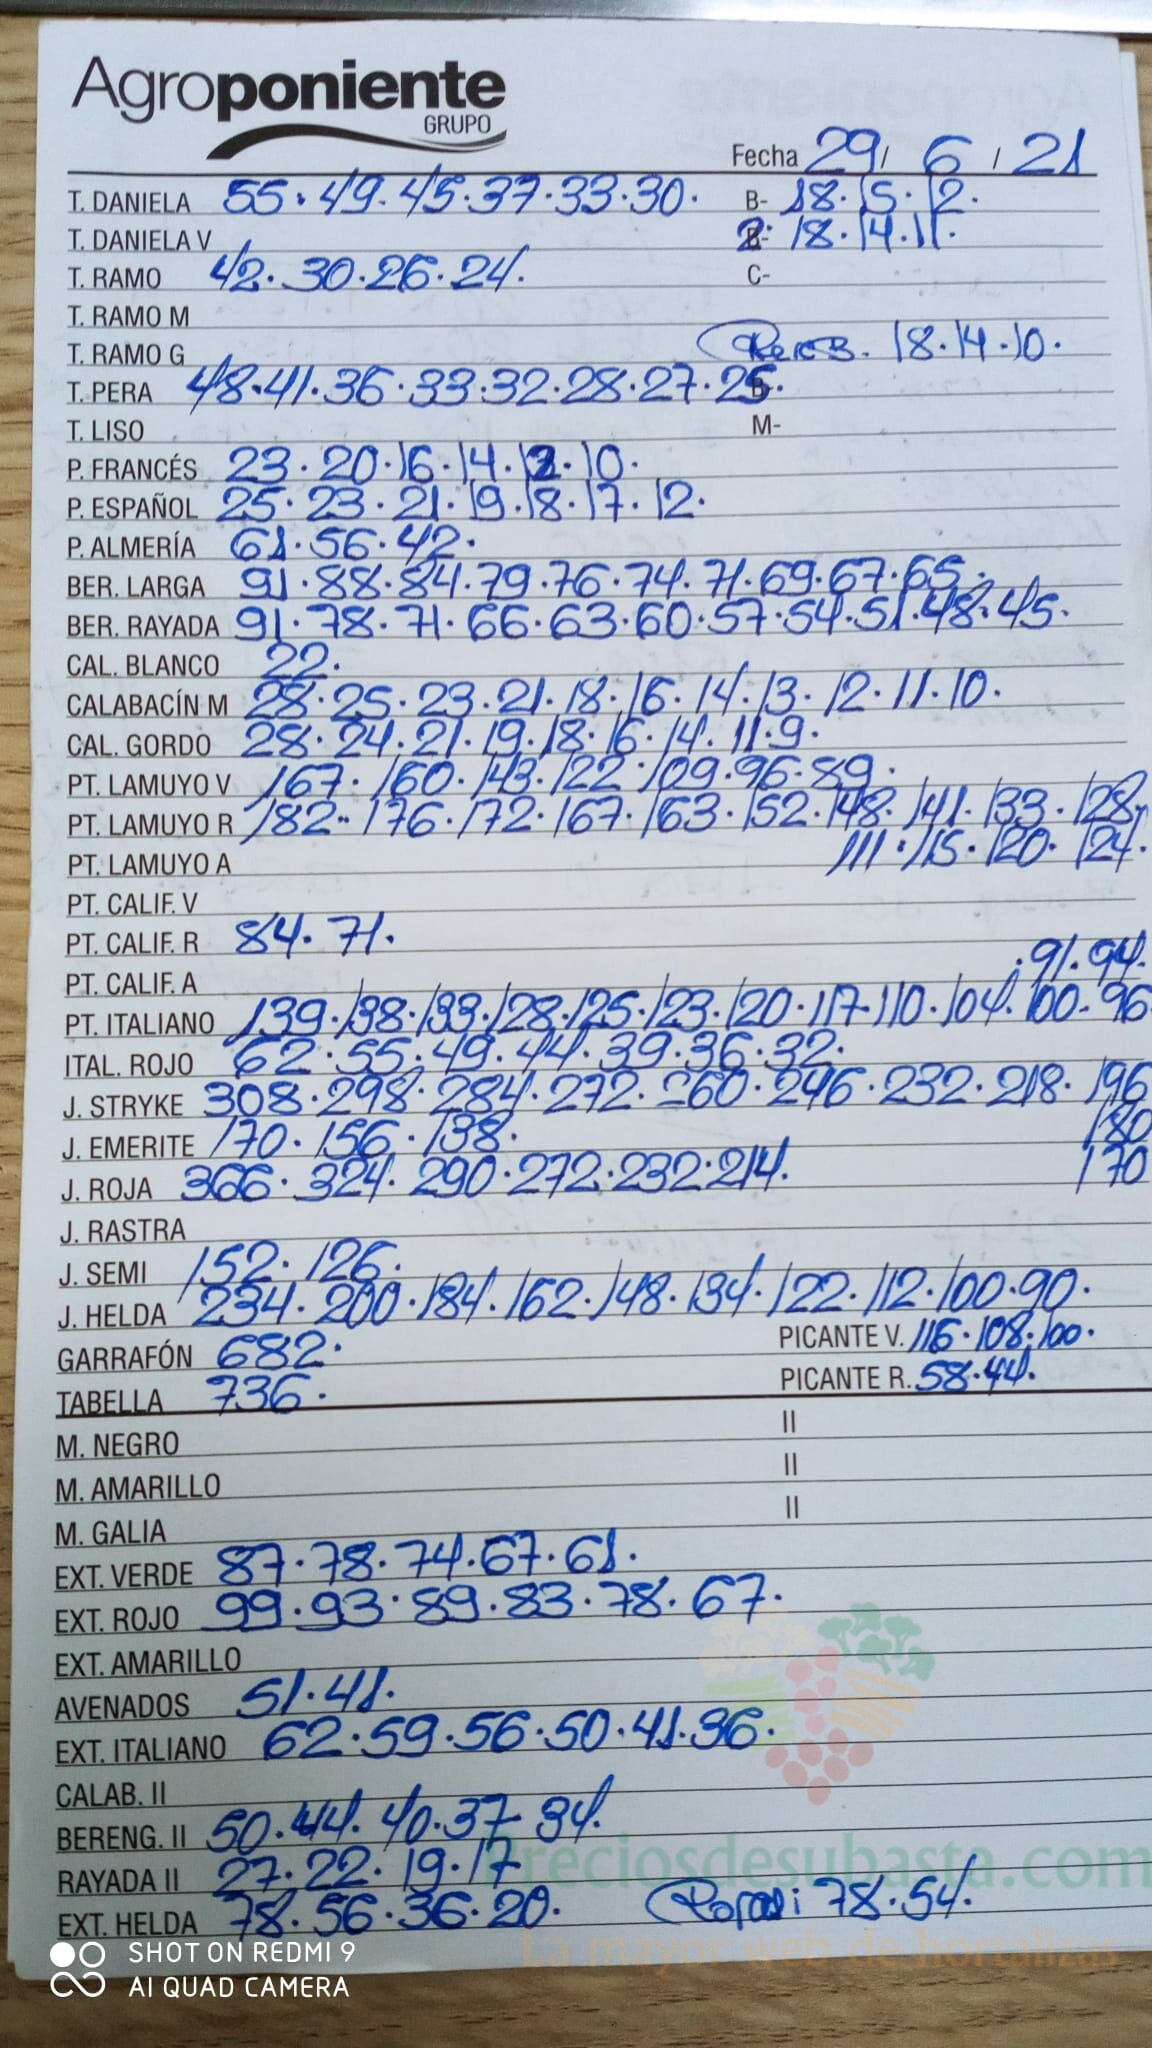 Agroponiente
GRUPO
Fecha 29/ 6 / 21
T. DANIELA 55.49.45.37.33.30. B- 18.15.12.
T. DANIELA V 2: 18.14.11.
T. RAMO 42.30.26.24. C-
T. RAMO M
T. RAMO G 18.14.10.
T. PERA 48.41.36.33.32.28.27.25.
T. LISO M-
P. FRANCÉS 23.20.16.14.12.10.
P. ESPAÑOL 25.23.21.19.18.17.12.
P. ALMERÍA 61.56.42.
BER. LARGA 91.88.84.79.76.74.71.69.67.65.
BER. RAYADA 91.78.71.66.63.60.57.54.51.48.45.
CAL. BLANCO 22.
CALABACÍN M 28.25.23.21.18.16.14.13.12.11.10.
CAL. GORDO 28.24.21.19.18.16.14.11.9.
PT. LAMUYO V 167.160.143.122.109.96.89.
PT. LAMUYO R 182.176.172.167.163.152.148.141.133.128.
PT. LAMUYO A 111.115.120.124.
PT. CALIF. V
PT. CALIF. R 84.71.
PT. CALIF. A .91.94.
PT. ITALIANO 139.138.133.128.125.123.120.117.110.104.100.96
ITAL. ROJO 62.55.49.44.39.36.32.
J. STRYKE 308.298.284.272.260.246.232.218.196
J. EMERITE 170.156.138. 180
J. ROJA 366.324.290.272.232.214. 170
J. RASTRA
J. SEMI 152.126.
J. HELDA 234.200.184.162.148.134.122.112.100.90.
GARRAFÓN 682. PICANTE V. 116.108.100.
TABELLA 736. PICANTE R. 58.44.
M. NEGRO II
M. AMARILLO II
M. GALIA II
EXT. VERDE 87.78.74.67.61.
EXT. ROJO 99.93.89.83.78.67.
EXT. AMARILLO
AVENADOS 51.41.
EXT. ITALIANO 62.59.56.50.41.36.
CALAB. II
BERENG. II 50.44.40.37.34.
RAYADA II 27.22.19.17
EXT. HELDA 78.56.36.20. 78.54.
Preciosdesubasta.com
La mayor web de hortalizas
SHOT ON REDMI 9
AI QUAD CAMERA